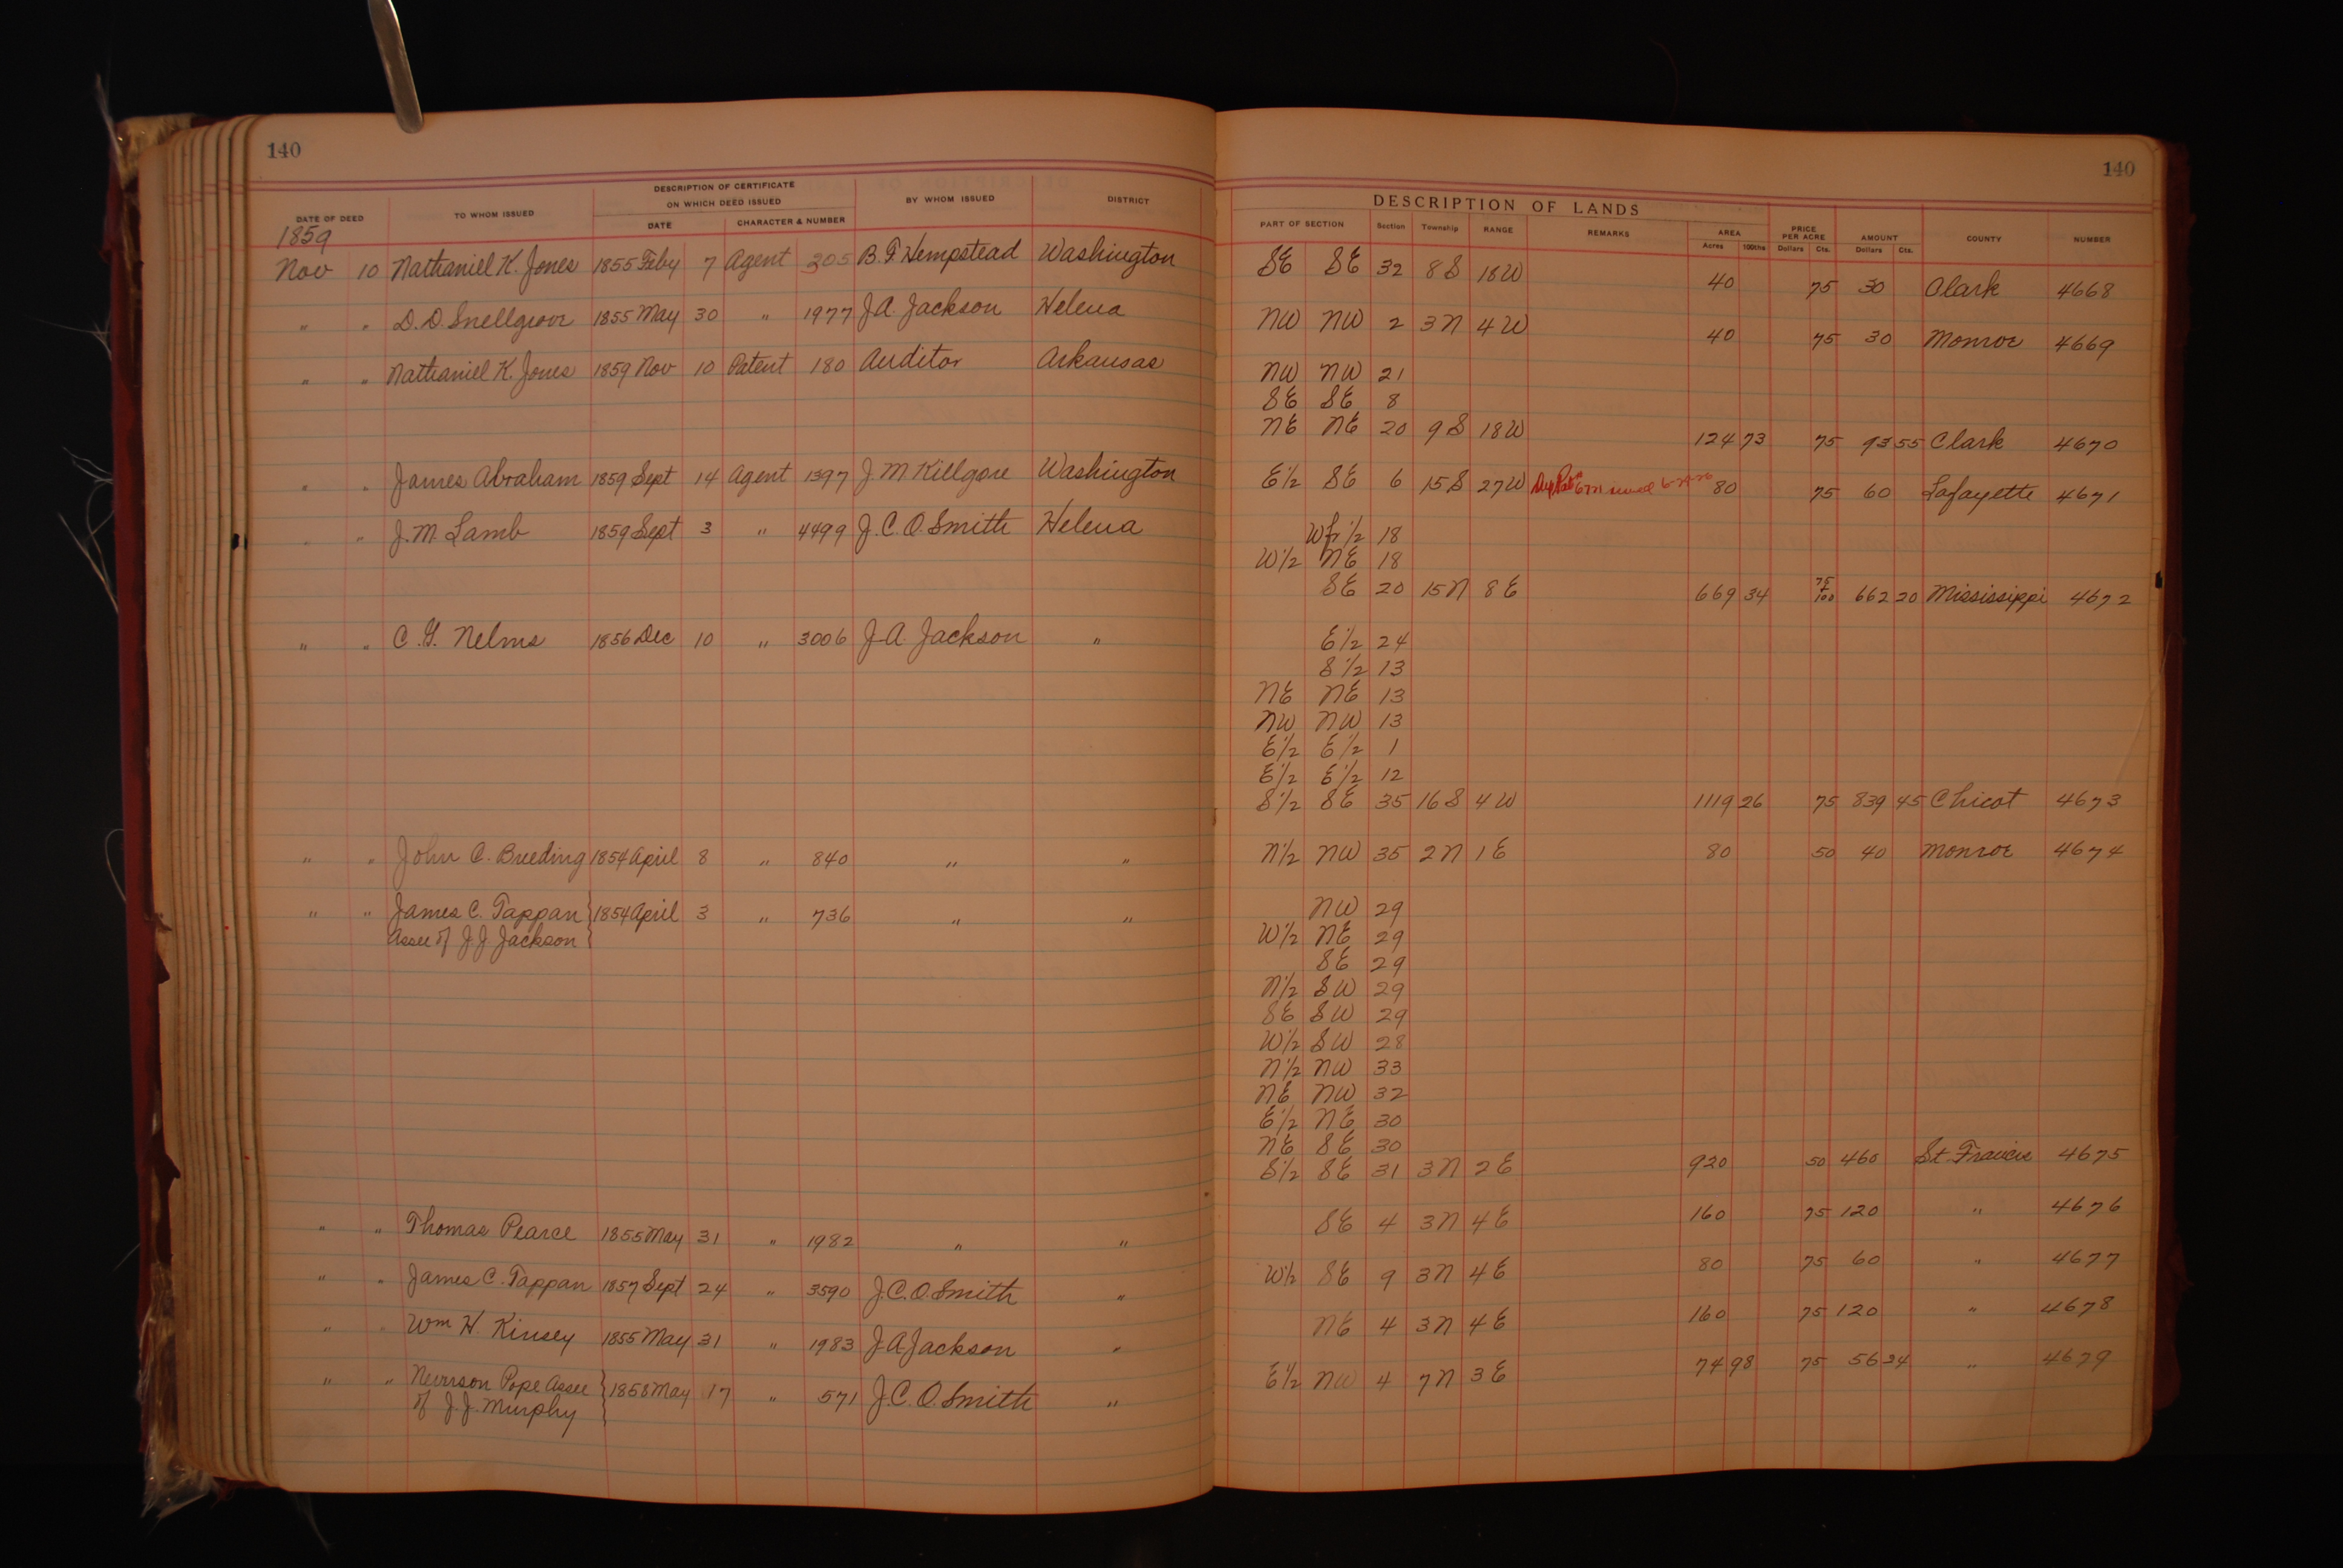 140
DATE OF DEED
TO WHOM ISSUED
DESCRIPTION OF CERTIFICATE
ON WHICH DEED ISSUED
DATE
CHARACTER & NUMBER
BY WHOM ISSUED
DISTRICT
1859
Nov 10 Nathaniel K. Jones 1855 Feby 7 Agent 305 B. F. Hempstead Washington
" " D. D. Snellgrove 1855 May 30 " 1977 J.A. Jackson Helena
" " Nathaniel K. Jones 1859 Nov 10 Patent 180 Auditor Arkansas
" " James Abraham 1859 Sept 14 Agent 1397 J M Killgore Washington
" " J. M. Lamb 1859 Sept 3 " 4499 J. C. O. Smith Helena
" " C. G. Nelms 1856 Dec 10 " 3006 J. A. Jackson "
" " John C. Breeding 1854 April 8 " 840 " "
" " James C. Tappan } 1854 April 3 " 736 " "
Assee of J. J. Jackson
" " Thomas Pearce 1855 May 31 " 1982 " "
" " James C. Tappan 1857 Sept 24 " 3590 J. C. O. Smith "
" " Wm H. Kinsey 1855 May 31 " 1983 J. A. Jackson "
" " Neverson Pope Assee } 1858 May 17 " 571 J. C. O. Smith "
of J. J. Murphy
140
DESCRIPTION OF LANDS
PART OF SECTION
Section
Township
RANGE
REMARKS
AREA
Acres 100ths
PRICE
PER ACRE
Dollars Cts.
AMOUNT
Dollars Cts.
COUNTY
NUMBER
SE SE 32 8 S 18 W 40 75 30 Clark 4668
NW NW 2 3 N 4 W 40 75 30 Monroe 4669
NW NW 21
SE SE 8
NE NE 20 9 S 18 W 124 73 75 93 55 Clark 4670
E 1/2 SE 6 15 S 27 W 80 75 60 Lafayette 4671
W fr 1/2 18
W 1/2 NE 18
SE 20 15 N 8 E 669 34 75 100 662 20 Mississippi 4672
E 1/2 24
S 1/2 13
NE NE 13
NW NW 13
E 1/2 E 1/2 1
E 1/2 E 1/2 12
S 1/2 SE 35 16 S 4 W 1119 26 75 839 45 Chicot 4673
N 1/2 NW 35 2 N 1 E 80 50 40 Monroe 4674
NW 29
W 1/2 NE 29
SE 29
N 1/2 SW 29
SE SW 29
W 1/2 SW 28
N 1/2 NW 33
NE NW 32
E 1/2 NE 30
NE SE 30
S 1/2 SE 31 3 N 2 E 920 50 460 St Francis 4675
SE 4 3 N 4 E 160 75 120 " 4676
W 1/2 SE 9 3 N 4 E 80 75 60 " 4677
NE 4 3 N 4 E 160 75 120 " 4678
E 1/2 NW 4 7 N 3 E 74 98 75 56 24 " 4679